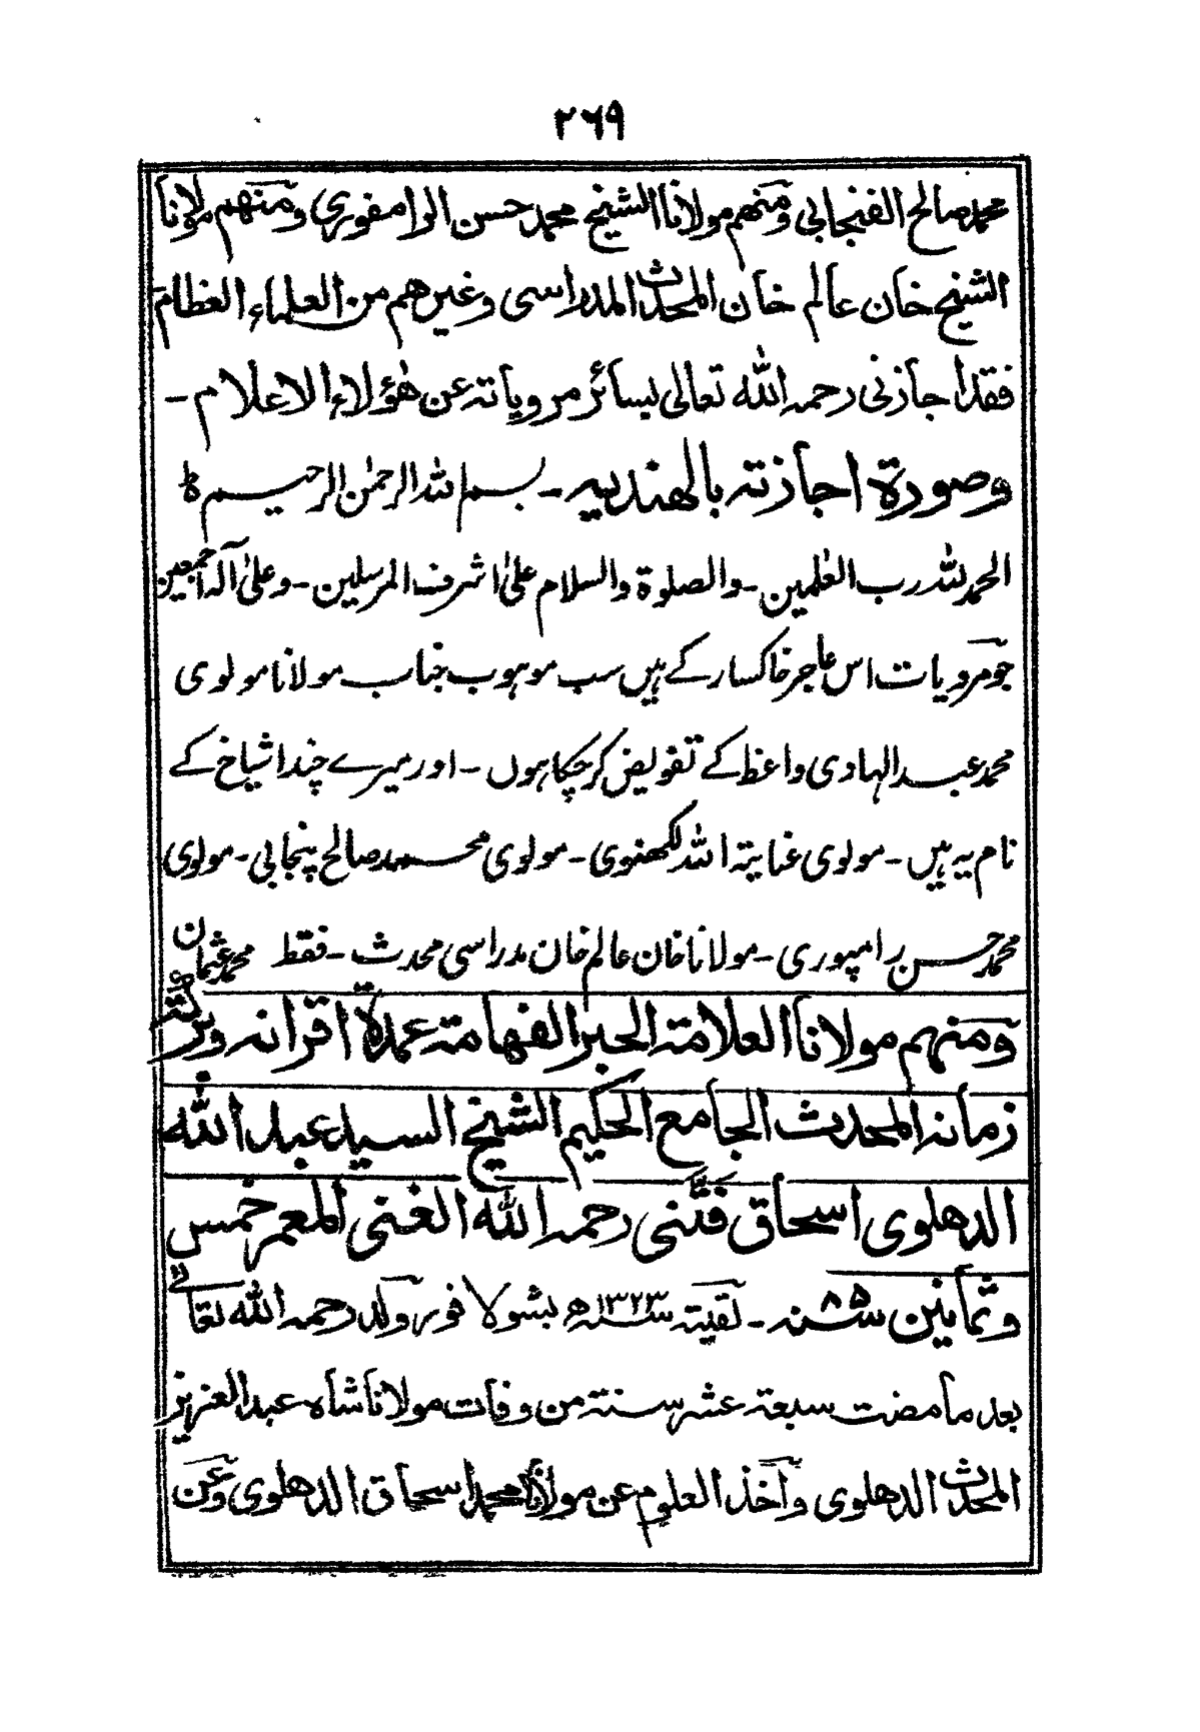 ٢٦٩
محمد صالح الفنجابي ومنهم مولانا الشيخ محمد حسن الرامفوري ومنهم مولانا
الشيخ خان عالم خان المحدث المدراسى وغيرهم من العلماء العظام
فقد اجازنى رحمه الله تعالى بسائر مروياته عن هٰؤلاء الاعلام -
وصورة اجازته بالهنديه - بسم الله الرحمٰن الرحيم ط
الحمد لله رب العٰلمين - والصلوة والسلام علىٰ اشرف المرسلين - وعلىٰ آله اجمعين
جو مرویات اس عاجز خاکسار کے ہیں سب موہوب جناب مولانا مولوی
محمد عبد الہادی واعظ کے تفویض کرچکا ہوں - اور میرے چند اشیاخ کے
نام یہ ہیں - مولوی عنایۃ اللہ لکھنوی - مولوی محمد صالح پنجابی - مولوی
محمد حسن رامپوری - مولانا خان عالم خان مدراسی محدث - فقط محمد عثمان
ومنهم مولانا العلامة الحبر الفهامة عمدة اقرانه وبركة
زمانه المحدث الجامع الحكيم الشيخ السيد عبد الله
الدهلوى اسحاق فتنى رحمه الله الغنى المعمر خمس
وثمانين ٨٥ سنه - لقيته سنة ١٣٢٣ه بشولافور ولد رحمه الله تعالے
بعد ما مضت سبعة عشر سنة من وفات مولانا شاه عبد العزيز
المحدث الدهلوى وأخذ العلوم عن مولانا محمد اسحاق الدهلوى وعن